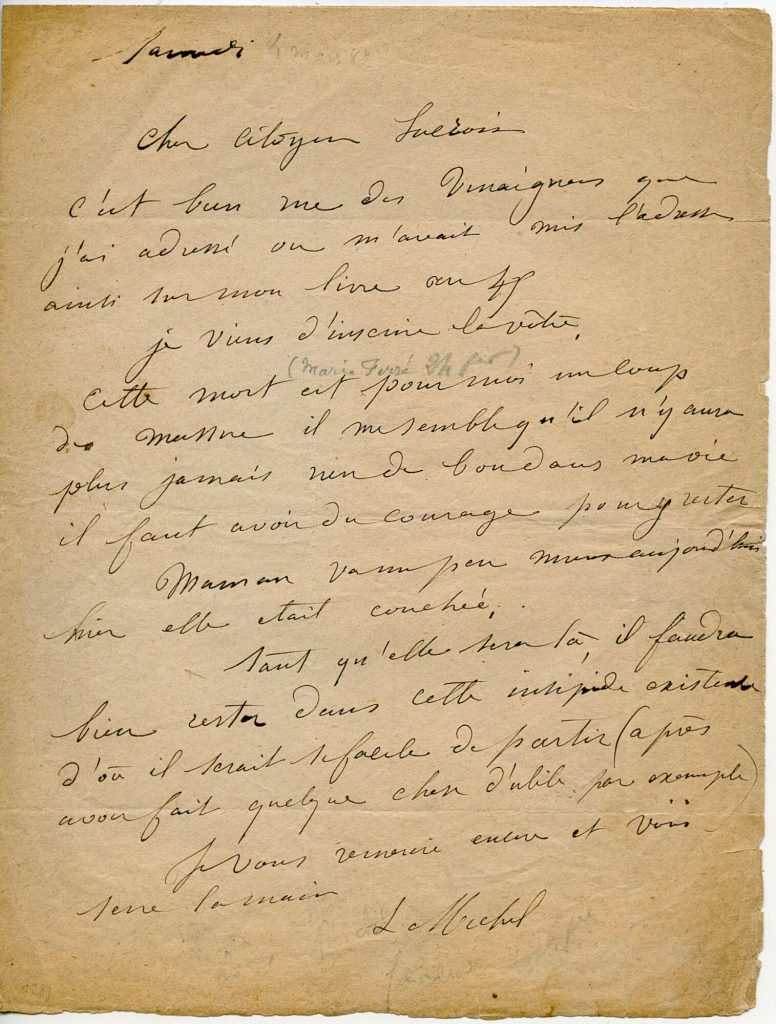 Samedi 4 mars 82
Cher Citoyen
c'est bien rue des Vinaigriers que
j'ai adressé on m'avait mis l'adresse
ainsi sur mon livre au 45
je viens d'inscrire la vôtre.
(Marie Ferré 24 fév)
Cette mort est pour moi un coup
de massue il me semble qu'il n'y aura
plus jamais rien de bon dans ma vie
il faut avoir du courage pour y rester
Maman va un peu mieux aujourd'hui
hier elle etait couchée,
tant qu'elle sera là, il faudra
bien rester dans cette insipide existence
d'où il serait si facile de partir (après
avoir fait quelque chose d'utile par exemple)
Je vous remercie encore et vous
serre la main
L Michel